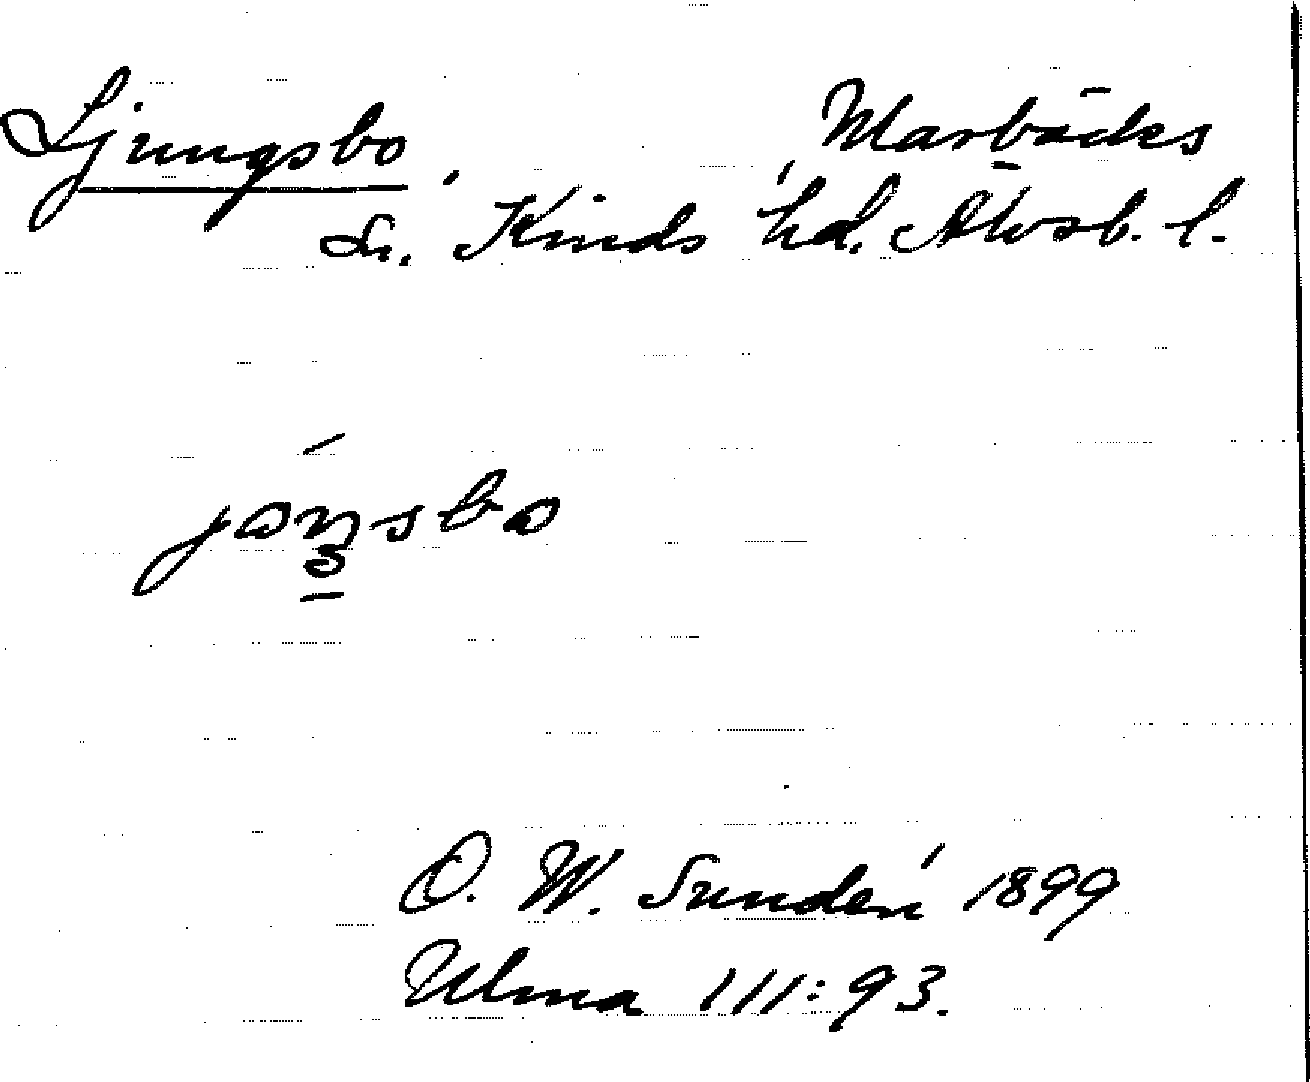 Ljungsbo, Marbäcks
sn. Kinds hd. Älvsb. l.
jonsbo
O. W. Sundén 1899
Ulma 111:93.